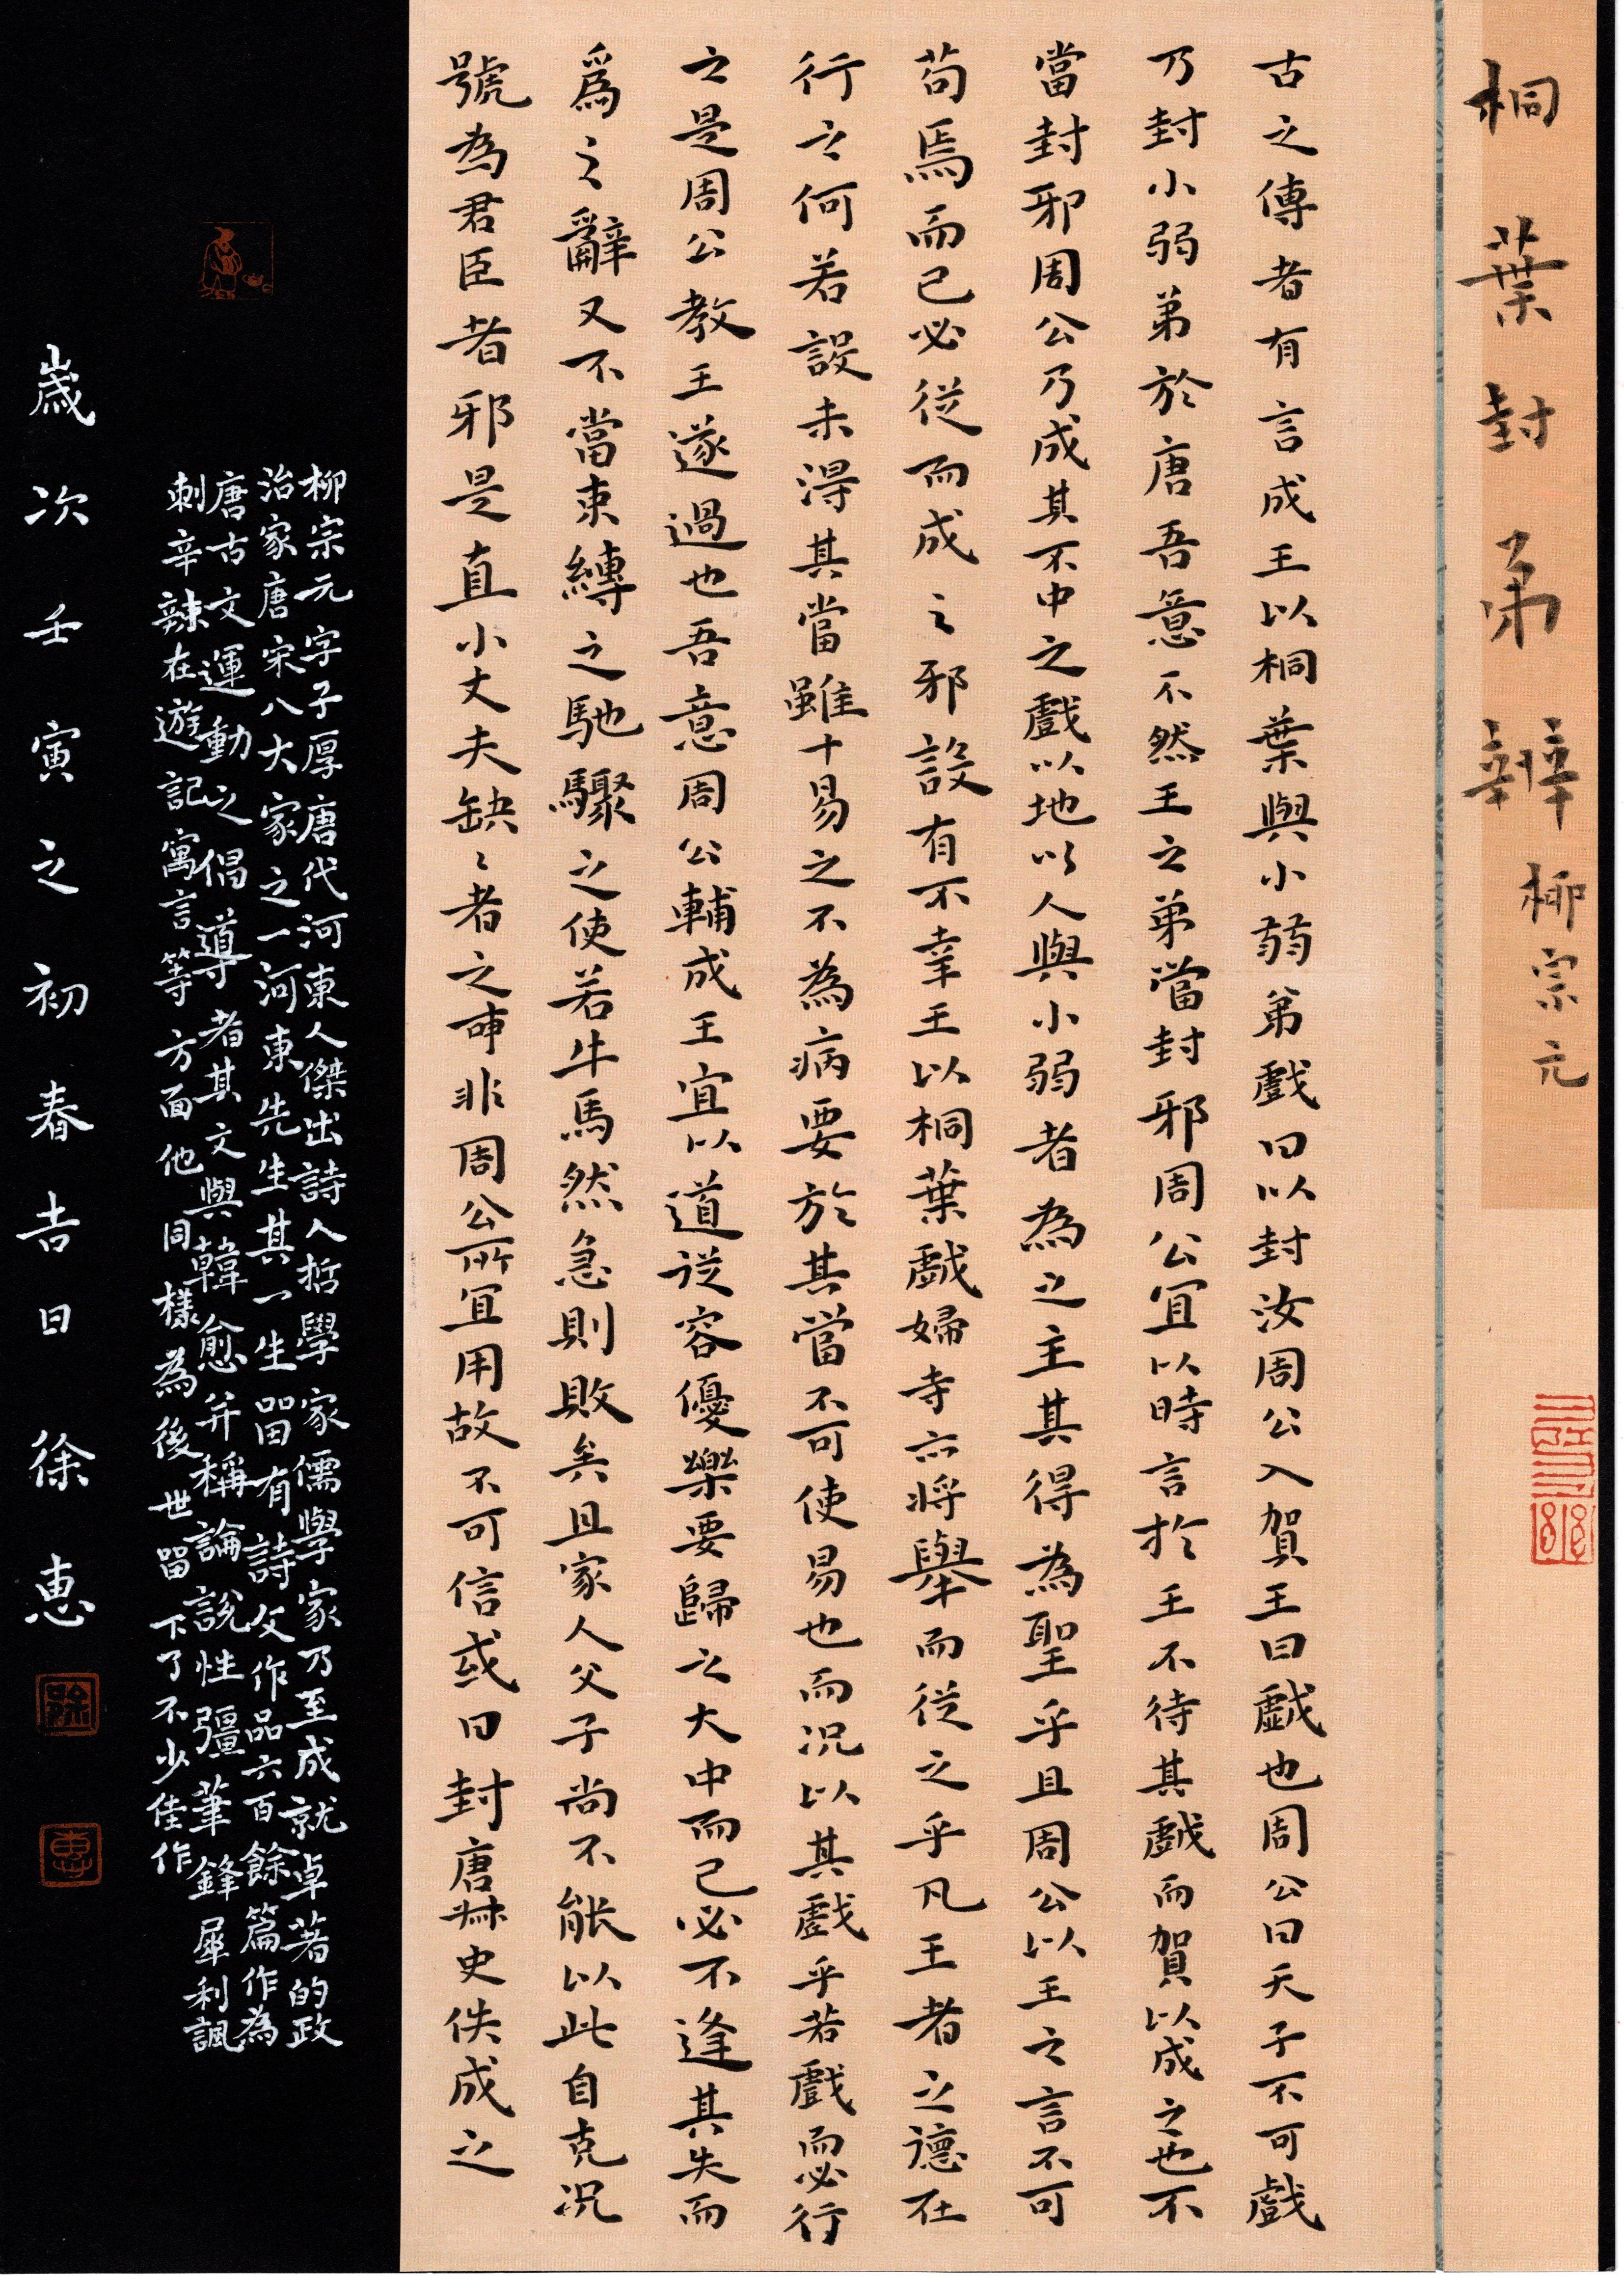 桐葉封弟辨 柳宗元
古之傳者有言成王以桐葉與小弱弟戲曰以封汝周公入賀王曰戲也周公曰天子不可戲
乃封小弱弟於唐吾意不然王之弟當封邪周公宜以時言於王不待其戲而賀以成之也不
當封邪周公乃成其不中之戲以地以人與小弱者為之主其得為聖乎且周公以王之言不可
苟焉而已必從而成之邪設有不幸王以桐葉戲婦寺亦將舉而從之乎凡王者之德在
行之何若設未得其當雖十易之不為病要於其當不可使易也而況以其戲乎若戲而必行
之是周公教王遂過也吾意周公輔成王宜以道從容優樂要歸之大中而已必不逢其失而
爲之辭又不當束縛之馳驟之使若牛馬然急則敗矣且家人父子尚不能以此自克況
號為君臣者邪是直小丈夫缺缺者之事非周公所宜用故不可信或曰封唐叔史佚成之
柳宗元字子厚唐代河東人傑出詩人哲學家儒學家乃至成就卓著的政
治家唐宋八大家之一河東先生其一生留有詩文作品六百餘篇作為
唐古文運動之倡導者其文與韓愈并稱論說性彊筆鋒犀利諷
刺辛辣在遊記寓言等方面他同樣為後世留下了不少佳作
歲次壬寅之初春吉日徐惠